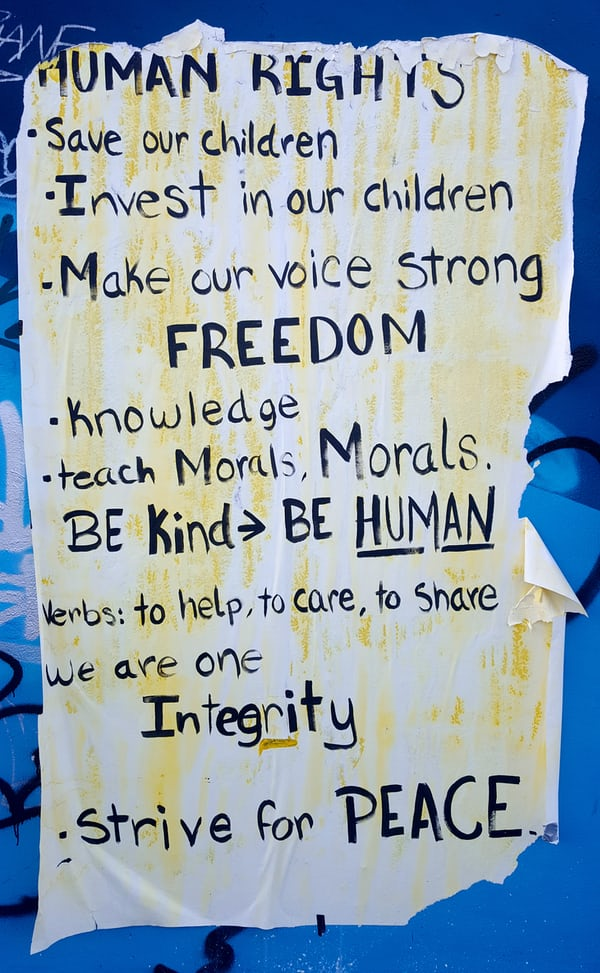 HUMAN RIGHTS
·Save our children
·Invest in our children
·Make our voice strong
FREEDOM
·Knowledge
·teach Morals, Morals.
BE Kind→ BE HUMAN
Verbs: to help, to care, to share
We are one
Integrity
·Strive for PEACE.